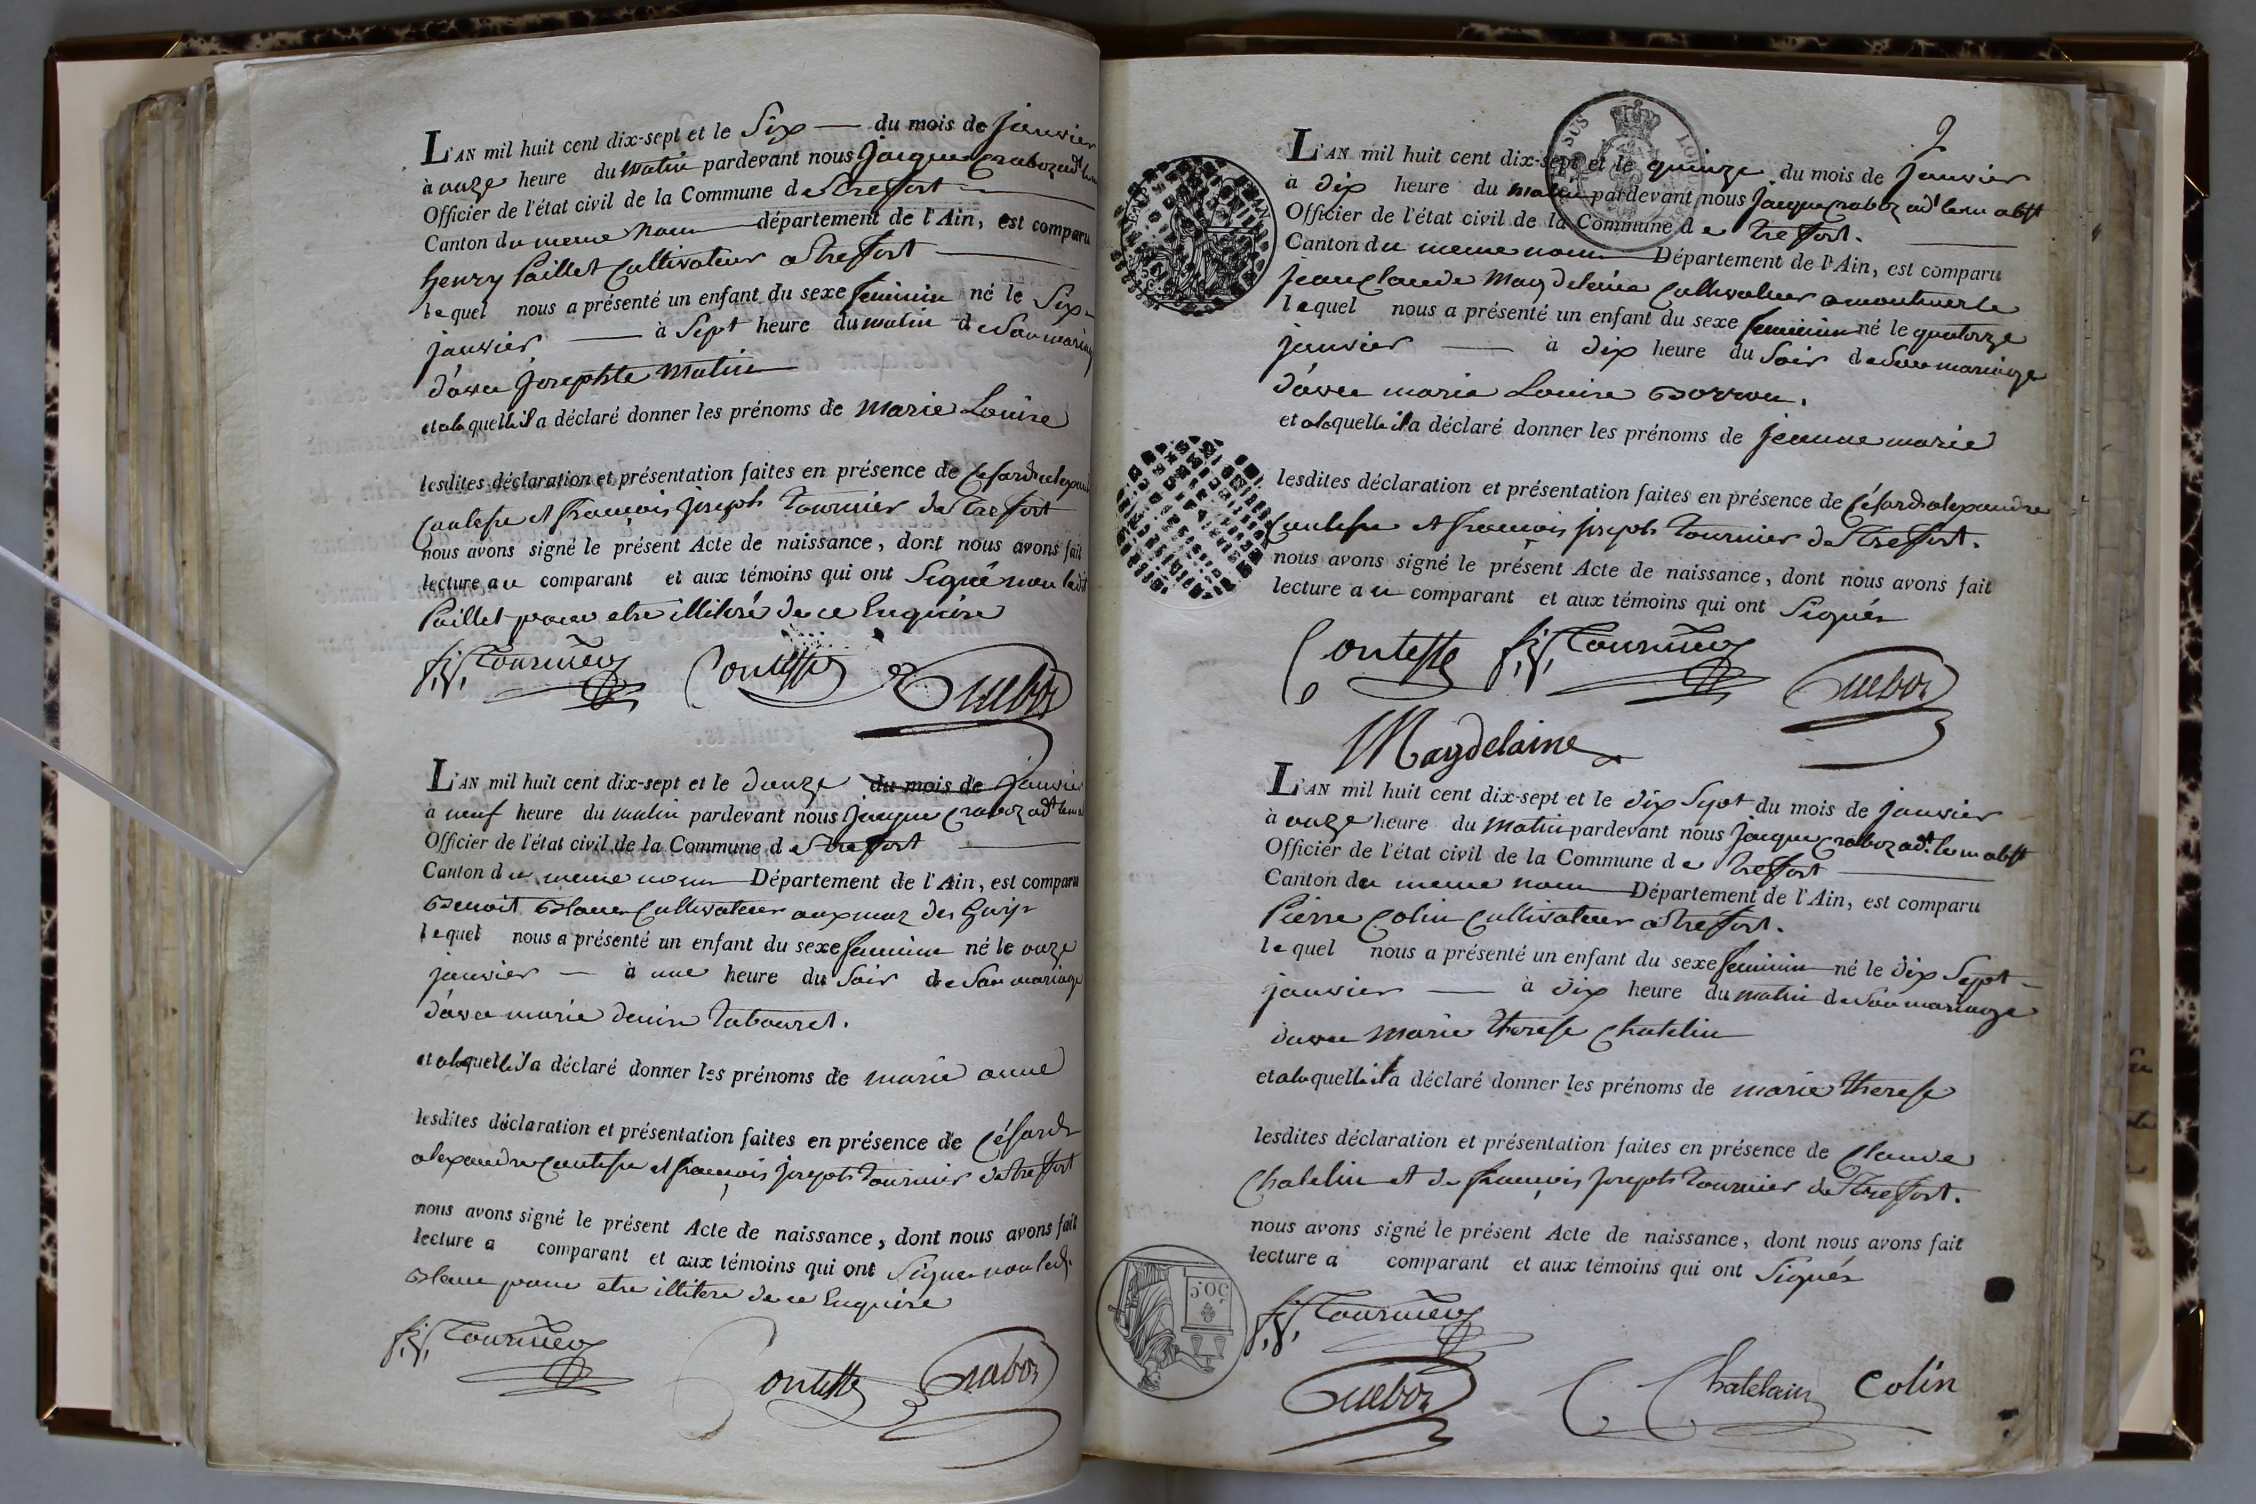 L'AN mil huit cent dix-sept et le Six du mois de janvier
à onze heure du matin pardevant nous jacques
Officier de l'état civil de la Commune de treffort
Canton du meme nom département de l'Ain, est comparu
henry Paillet Cultivateur a treffort
lequel nous a présenté un enfant du sexe feminin né le Six
janvier à Sept heure du matin de Son mariage
d'avec josephte Matin
et a laquelle il a déclaré donner les prénoms de marie Louise
lesdites déclaration et présentation faites en présence de Césard alexandre
Contesse et françois joseph tournier de treffort
nous avons signé le présent Acte de naissance, dont nous avons fait
lecture au comparant et aux témoins qui ont Signé non ledit
Paillet pour etre illitéré de ce Enquire
f.j. Tournier Contesse
L'AN mil huit cent dix-sept et le douze du mois de janvier
à neuf heure du matin pardevant nous jacque
Officier de l'état civil de la Commune de treffort
Canton du meme nom Département de l'Ain, est comparu
Benoit Blanc Cultivateur
lequel nous a présenté un enfant du sexe feminin né le onze
janvier à une heure du Soir de Son mariage
d'avec marie denise tabouret.
et a laquelle il a déclaré donner les prénoms de marie anne
lesdites déclaration et présentation faites en présence de Césard
alexandre Contesse et françois joseph tournier de treffort
nous avons signé le présent Acte de naissance, dont nous avons fait
lecture a comparant et aux témoins qui ont Signer non led.
Blanc pour etre illitere de ce Enquire
f.j. Tournier Contesse
2
L'AN mil huit cent dix-sept et le quinze du mois de janvier
à dix heure du matin pardevant nous jacque
Officier de l'état civil de la Commune de treffort.
Canton du meme nom Département de l'Ain, est comparu
jean Claude Magdeleine Cultivateur a montmerle
lequel nous a présenté un enfant du sexe feminin né le quatorze
janvier à dix heure du Soir de Son mariage
d'avec marie Louise
et a laquelle il a déclaré donner les prénoms de jeanne marie
lesdites déclaration et présentation faites en présence de Césard alexandre
Contesse et françois joseph tournier de treffort.
nous avons signé le présent Acte de naissance, dont nous avons fait
lecture au comparant et aux témoins qui ont Signés
Contesse f.j. Tournier
Magdelaine
L'AN mil huit cent dix-sept et le dix Sept du mois de janvier
à onze heure du Matin pardevant nous jacque
Officier de l'état civil de la Commune de treffort
Canton du meme nom Département de l'Ain, est comparu
Pierre Colin Cultivateur a treffort.
lequel nous a présenté un enfant du sexe feminin né le dix Sept
janvier à dix heure du matin de Son mariage
davec Marie therese Chatelin
et a laquelle il a déclaré donner les prénoms de marie therese
lesdites déclaration et présentation faites en présence de Claude
Chatelin et de françois joseph tournier de treffort.
nous avons signé le présent Acte de naissance, dont nous avons fait
lecture a comparant et aux témoins qui ont Signés
f.j. Tournier
C Chatelain Colin